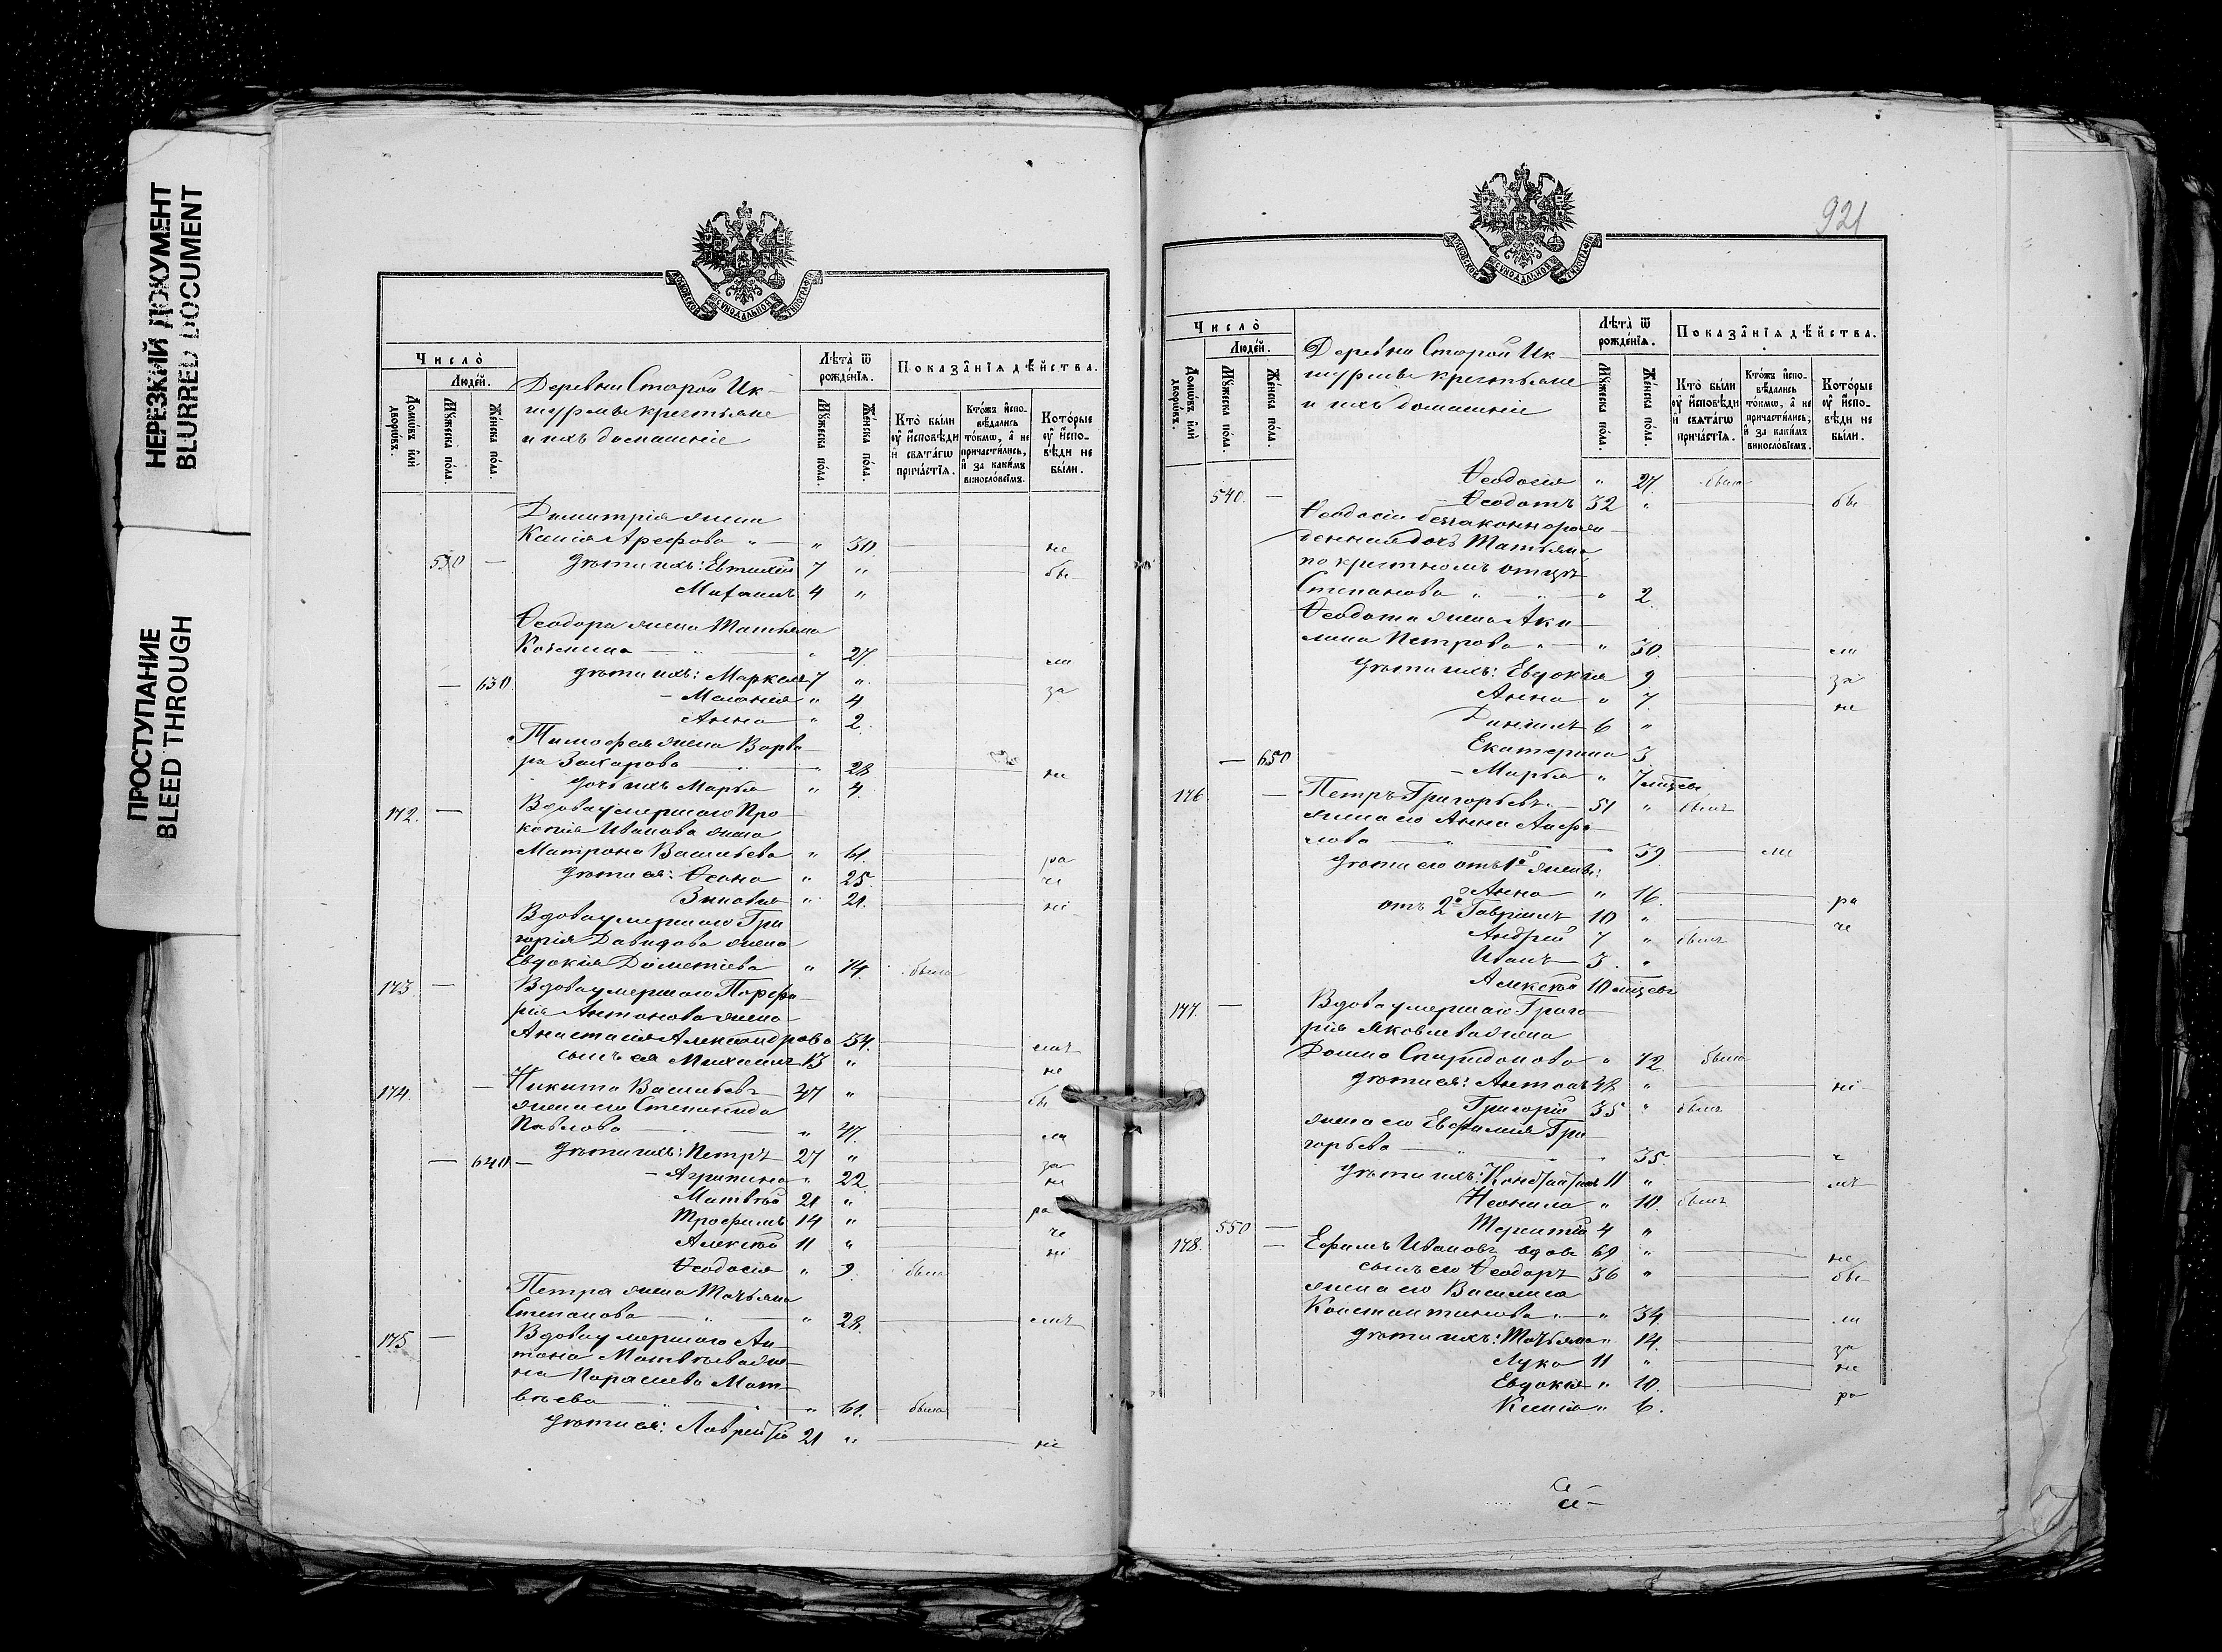 НЕРЕЗКИЙ ДОКУМЕНТ
BLURRED DOCUMENT
ПРОСТУПАНИЕ
BLEED THROUGH
МОСКОВСКОЙ СѴНОДАЛЬНОЙ ТИПОГРАФІИ
Число̀
Люде́й.
Домѡ́въ и҆лѝ дворѡ́въ.
Мꙋ́жеска по́ла.
Же́нска по́ла.
Деревни Старой Ик-
шурмы крестьяне
и ихъ домашніе
Лѣта̀ ѿ рожде́нїѧ.
Мꙋ́жеска по́ла.
Же́нска по́ла.
Показа̑нїѧ дѣ́йства.
Кто̀ бы́ли ᲂу҆ и҆сповѣ́ди и҆ свѧта́гѡ прича́стїѧ.
Кто́жъ и҆спо-вѣ́дались то́кмѡ, а҆ не причасти́лись, и҆ за каки́мъ винослові́емъ.
Кото́рые ᲂу҆ и҆спо-вѣ́ди не бы́ли.
Димитрія жена
Ксенія Арефова " — " 30. не
530 — дѣти ихъ: Евтихій 7 " бы
Миѳаилъ 4 "
Ѳеодора жена Татьяна
Козмина — " 27. ли
— 630 дѣти ихъ: Маркелъ 7 " за
Меланія " 4
Анна " 2.
Тимофея жена Варва-
ра Захарова — " 28 не
дочь ихъ Марѳа " 4.
172. — Вдова умершаго Про-
копія Иванова жена
Матрона Васильева " 61. ра
дѣти ея: Ѳеона " 25. че
Зиновія " 21. ні
Вдова умершаго Гри-
горія Давидова жена
Евдокія Дометіева " 74. была
173. — Вдова умершаго Порфи-
рія Антонова жена
Анастасія Александрова 54. емъ
сынъ ея Михаилъ 13 " не
174. — Никита Васильевъ 47 " бы
жена его Степанида
Павлова — " 47. ли
— 640 — дѣти ихъ: Петръ 27 " за
Агрипина " 22. не
Матвѣй 21 " ра
Трофимъ 14 " че
Алексѣй 11 " ні
Ѳеодосія " 9. была
Петра жена Татьяна
Степанова — " — " 28. емъ
175 — Вдова умершаго Ан-
тона Матвѣева же-
на Парасева Мат-
вѣева — " 61. была
дѣти ея: Лаврентій 21 " не
921
МОСКОВСКОЙ СѴНОДАЛЬНОЙ ТИПОГРАФІИ
Число̀
Люде́й.
Домѡ́въ и҆лѝ дворѡ́въ.
Мꙋ́жеска по́ла.
Же́нска по́ла.
Деревни Старой Ик-
шурмы крестьяне
и ихъ домашніе
Лѣта̀ ѿ рожде́нїѧ.
Мꙋ́жеска по́ла.
Же́нска по́ла.
Показа̑нїѧ дѣ́йства.
Кто̀ бы́ли ᲂу҆ и҆сповѣ́ди и҆ свѧта́гѡ прича́стїѧ.
Кто́жъ и҆спо-вѣ́дались то́кмѡ, а҆ не причасти́лись, и҆ за каки́мъ винослові́емъ.
Кото́рые ᲂу҆ и҆спо-вѣ́ди не бы́ли.
Ѳеодосія " 27. была
540. — Ѳеодотъ 32 " бы
Ѳеодосіи беззаконнорож-
денная дочь Татьяна,
по крестномъ отцѣ
Степанова " — " 2.
Ѳеодота жена Аки-
лина Петрова " — " 30. ли
дѣти ихъ: Евдокія 9 за
Анна " 7. не
Даніилъ 6 "
Екатерина 3
— 650 Марѳа " 7 мѣсяцев
176. — Петръ Григорьевъ — 51 " былъ
жена его Анна Агафо-
нова — 39. ли
дѣти его отъ 1й жены:
Анна " 16. ра
отъ 2й Гавріилъ 10 " че
Андрей 7 " былъ
Иванъ 3 "
Алексѣй 10 мѣсяцев
177. — Вдова умершаго Григо-
рія Яковлева жена
Домна Спиридонова " 72. была
дѣти ея: Антонъ 48 " ні
Григорій 35 " былъ
жена его Евфимія Гри-
горьева — " 35. е
дѣти ихъ: Кондратъ 11 " мъ
Неонила " 10. былъ
550 — Терентій 4 "
178. — Ефимъ Ивановъ вдов 61 " не
сынъ его Ѳеодоръ 36 " бы
жена его Василиса
Константинова " — " 34 ли
дѣти ихъ: Татьяна " 14. за
Лука 11 " не
Евдокія " 10. ра
Ксенія " 6.